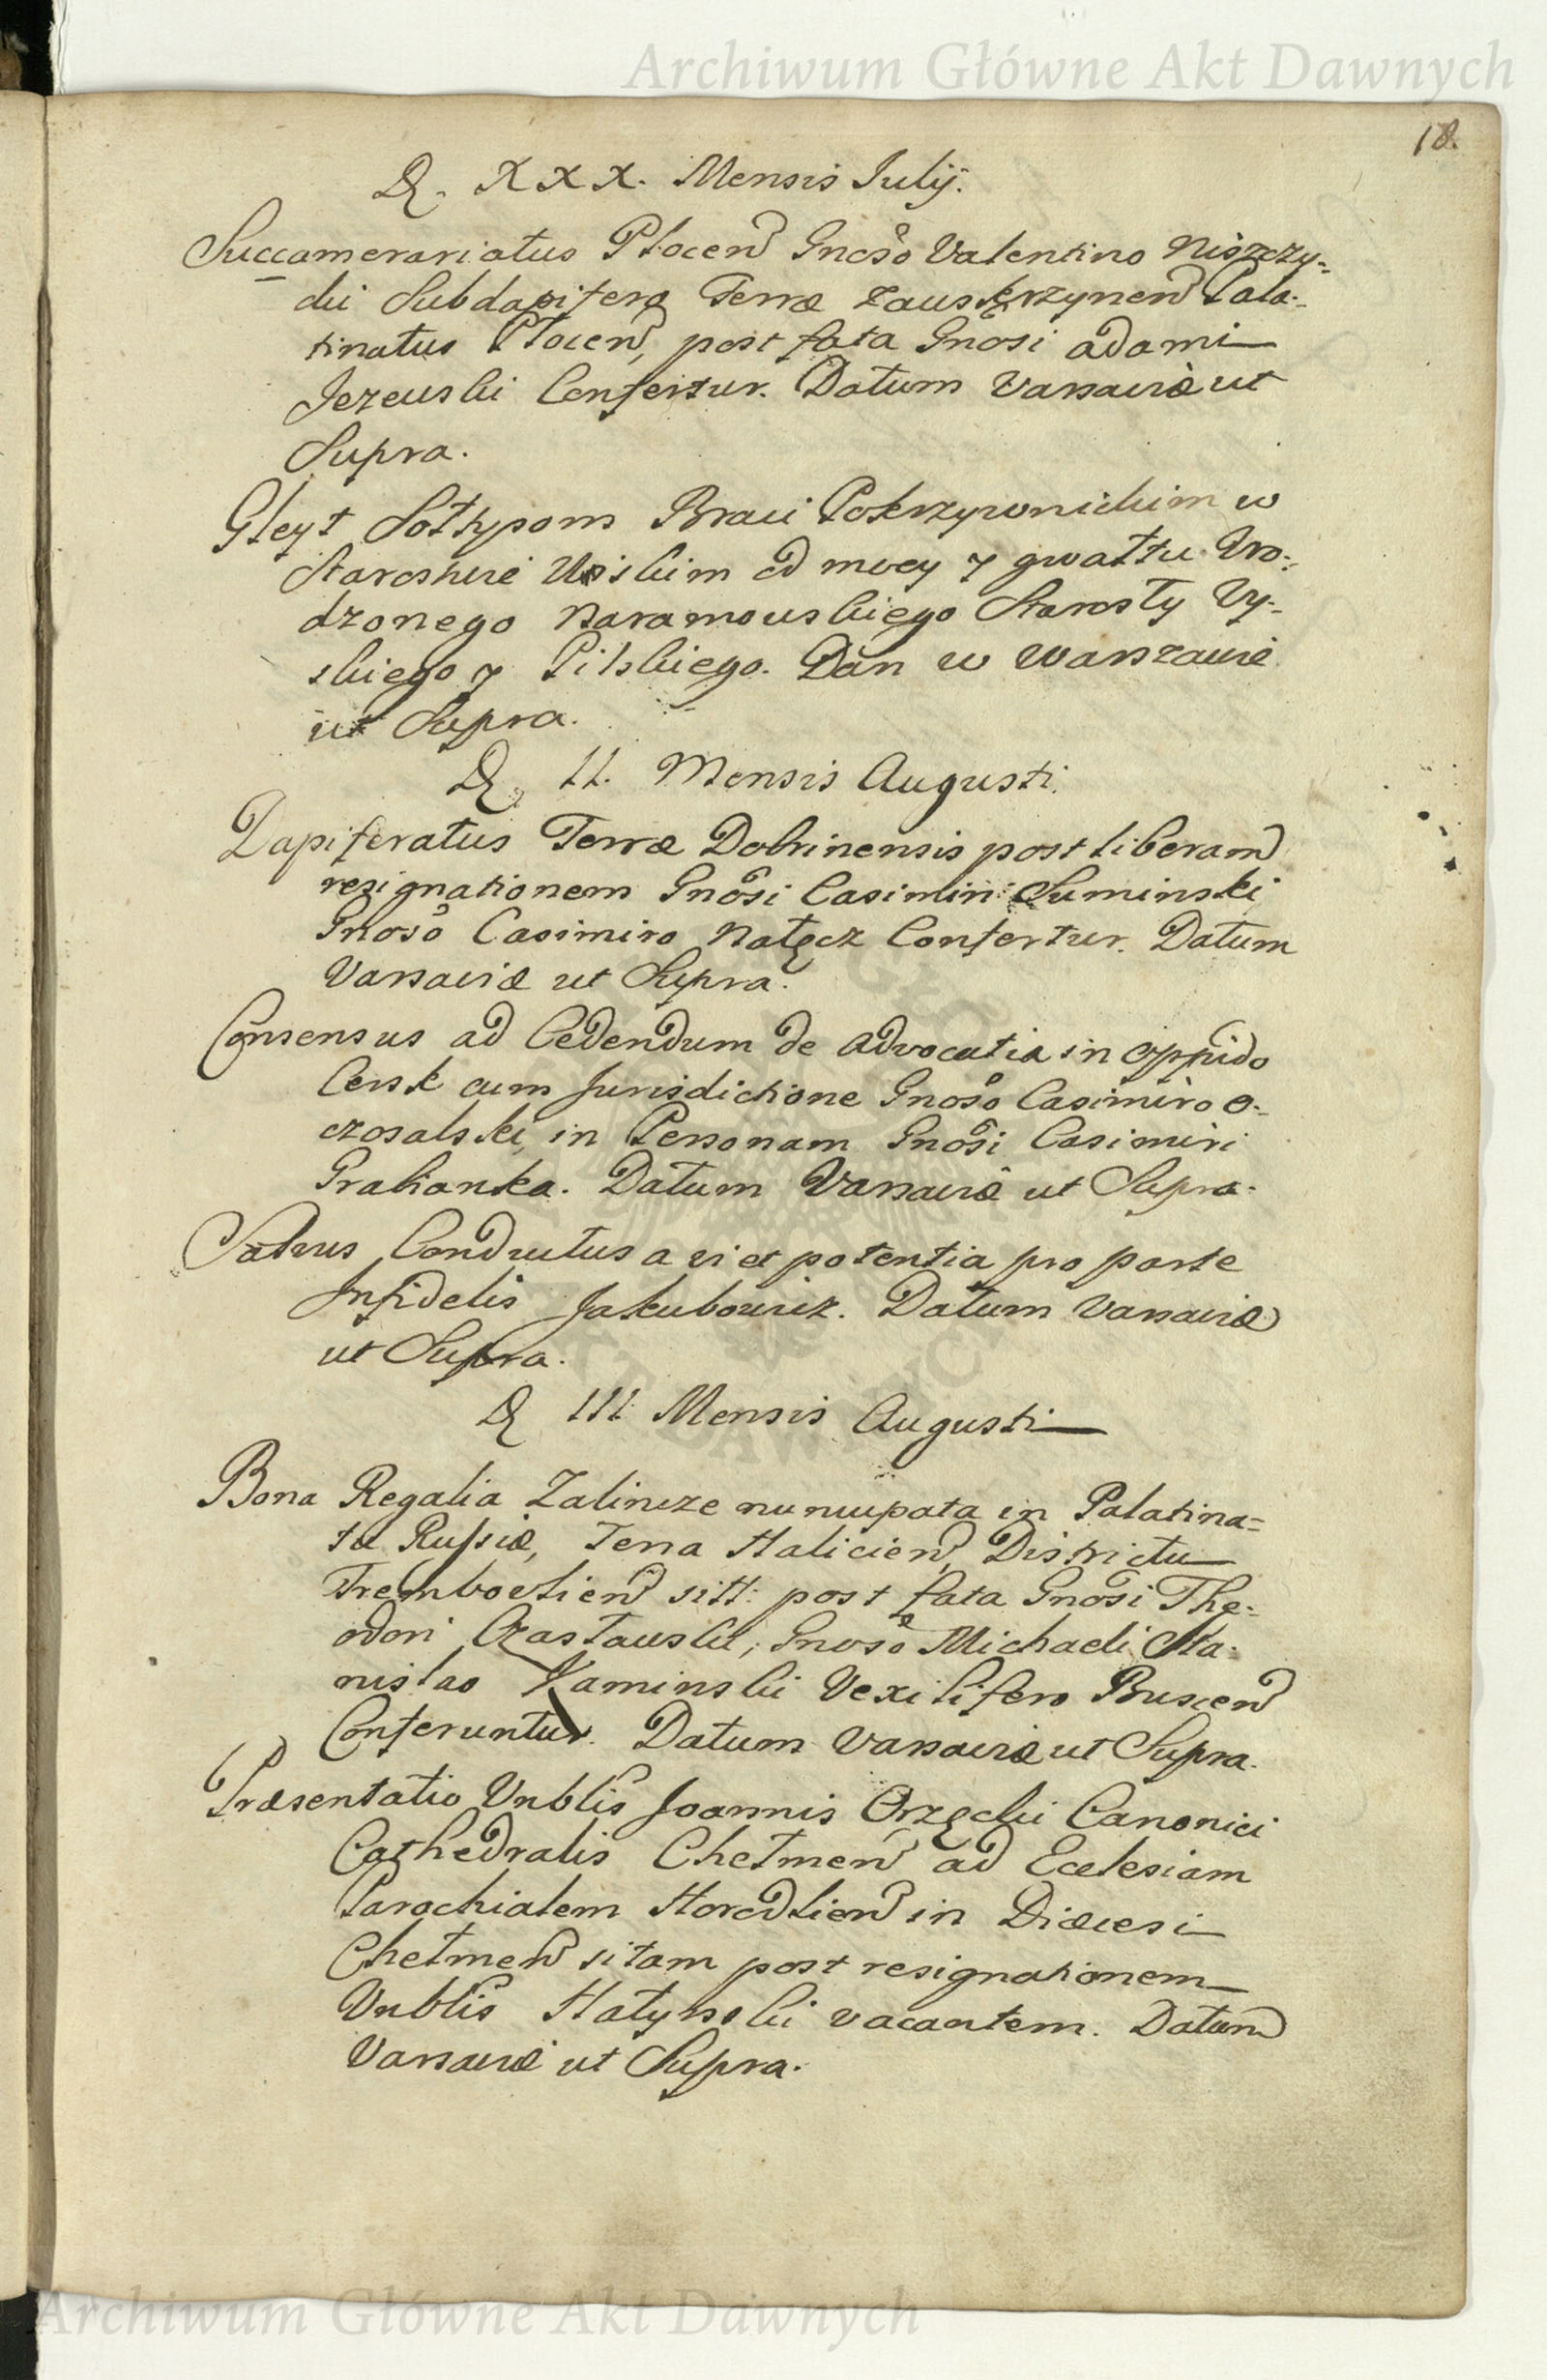 Archiwum Główne Akt Dawnych
18.
D. XXX. Mensis Julij.
Succamerariatus Płocen Gnoso Valentino Niszczy-
cki Subdapifero Terræ Zauskrzynen Pala-
tinatus Płocen, post fata Gnosi Adami
Jezewski Confertur. Datum Varsaviæ ut
Supra.
Gleyt Sołtysom Braci Pokrzywnickim w
Starostwie Uiskim od mocy y gwałtu Uro-
dzonego Naramowskiego Starosty Uy-
skiego y Pilskiego. Dan w Warszawie
ut Supra.
D. II. Mensis Augusti.
Dapiferatus Terræ Dobrinensis post liberam
resignationem Gnosi Casimiri Suminski
Gnoso Casimiro Nałęcz Confertur. Datum
Varsaviæ ut Supra.
Consensus ad Cedendum de Advocatia in oppido
Cersk cum Jurisdictione Gnoso Casimiro O-
czosalski, in Personam Gnosi Casimiri
Grabianka. Datum Varsaviæ ut Supra.
Salvus Conductus a vi et potentia pro parte
Infidelis Jakubowicz. Datum Varsaviæ
ut Supra.
D III Mensis Augusti
Bona Regalia Zalincze nuncupata in Palatina-
tu Russiæ, Terra Halicien, Districtu
Trembovlien sitt: post fata Gnosi The-
odori Czasławski, Gnoso Michaeli Sta-
nislao Kaminski Vexilifero Buscen
Conferuntur. Datum Varsaviæ ut Supra.
Præsentatio Vnblis Joannis Orzęcki Canonici
Cathedralis Chełmen ad Ecclesiam
Parochialem Horodlien in Diæcesi
Chełmen sitam post resignationem
Vnblis Hatynski vacantem. Datum
Varsaviæ ut Supra.
Archiwum Główne Akt Dawnych